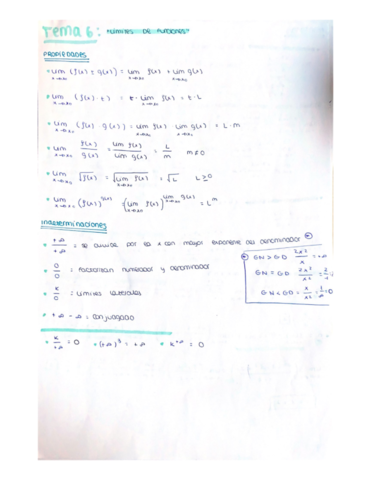 Tema 6: "Límites de funciones"
PROPIEDADES
• lim x→x₀ (f(x) ± g(x)) = lim x→x₀ f(x) ± lim x→x₀ g(x)
• lim x→x₀ (f(x) · t) = t · lim x→x₀ f(x) = t · L
• lim x→x₀ (f(x) g(x)) = lim x→x₀ f(x) · lim x→x₀ g(x) = L · m
• lim x→x₀ f(x)/g(x) = lim f(x)/lim g(x) = L/m m≠0
• lim x→x₀ √f(x) = √lim f(x) = √L L≥0
• lim x→x₀ (f(x))^g(x) = (lim x→x₀ f(x))^lim x→x₀ g(x) = L^m
Indeterminaciones
• +∞/+∞ = se divide por la x con mayor exponente del denominador *
* GN > GD = +∞
GN = GD
GN < GD = 0
• 0/0 = factorizan numerador y denominador
• k/0 = límites laterales
• +∞ - ∞ = conjugado
• k/+∞ = 0 • = +∞ • = 0